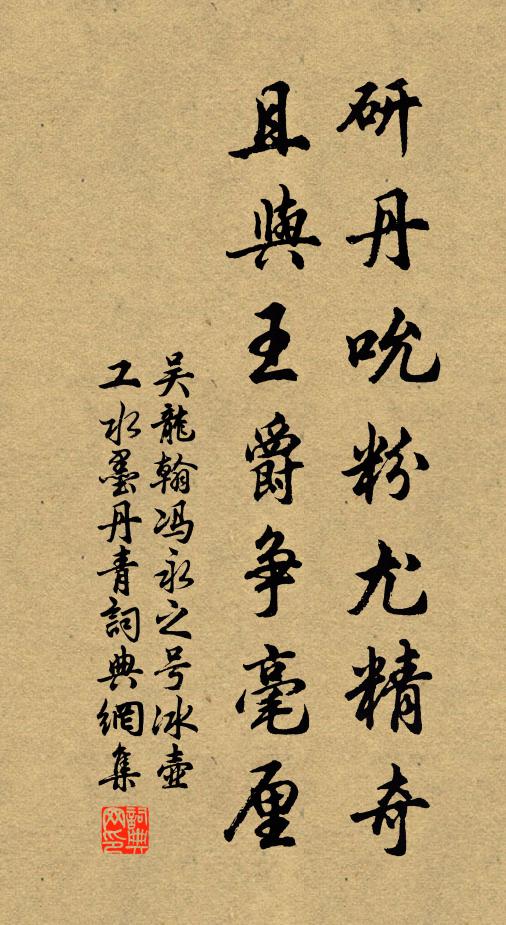 研丹吮粉尤精奇
且與王爵争毫厘
吴龍翰冯永之号冰壶
工水墨丹青詞典網集
詞典网印